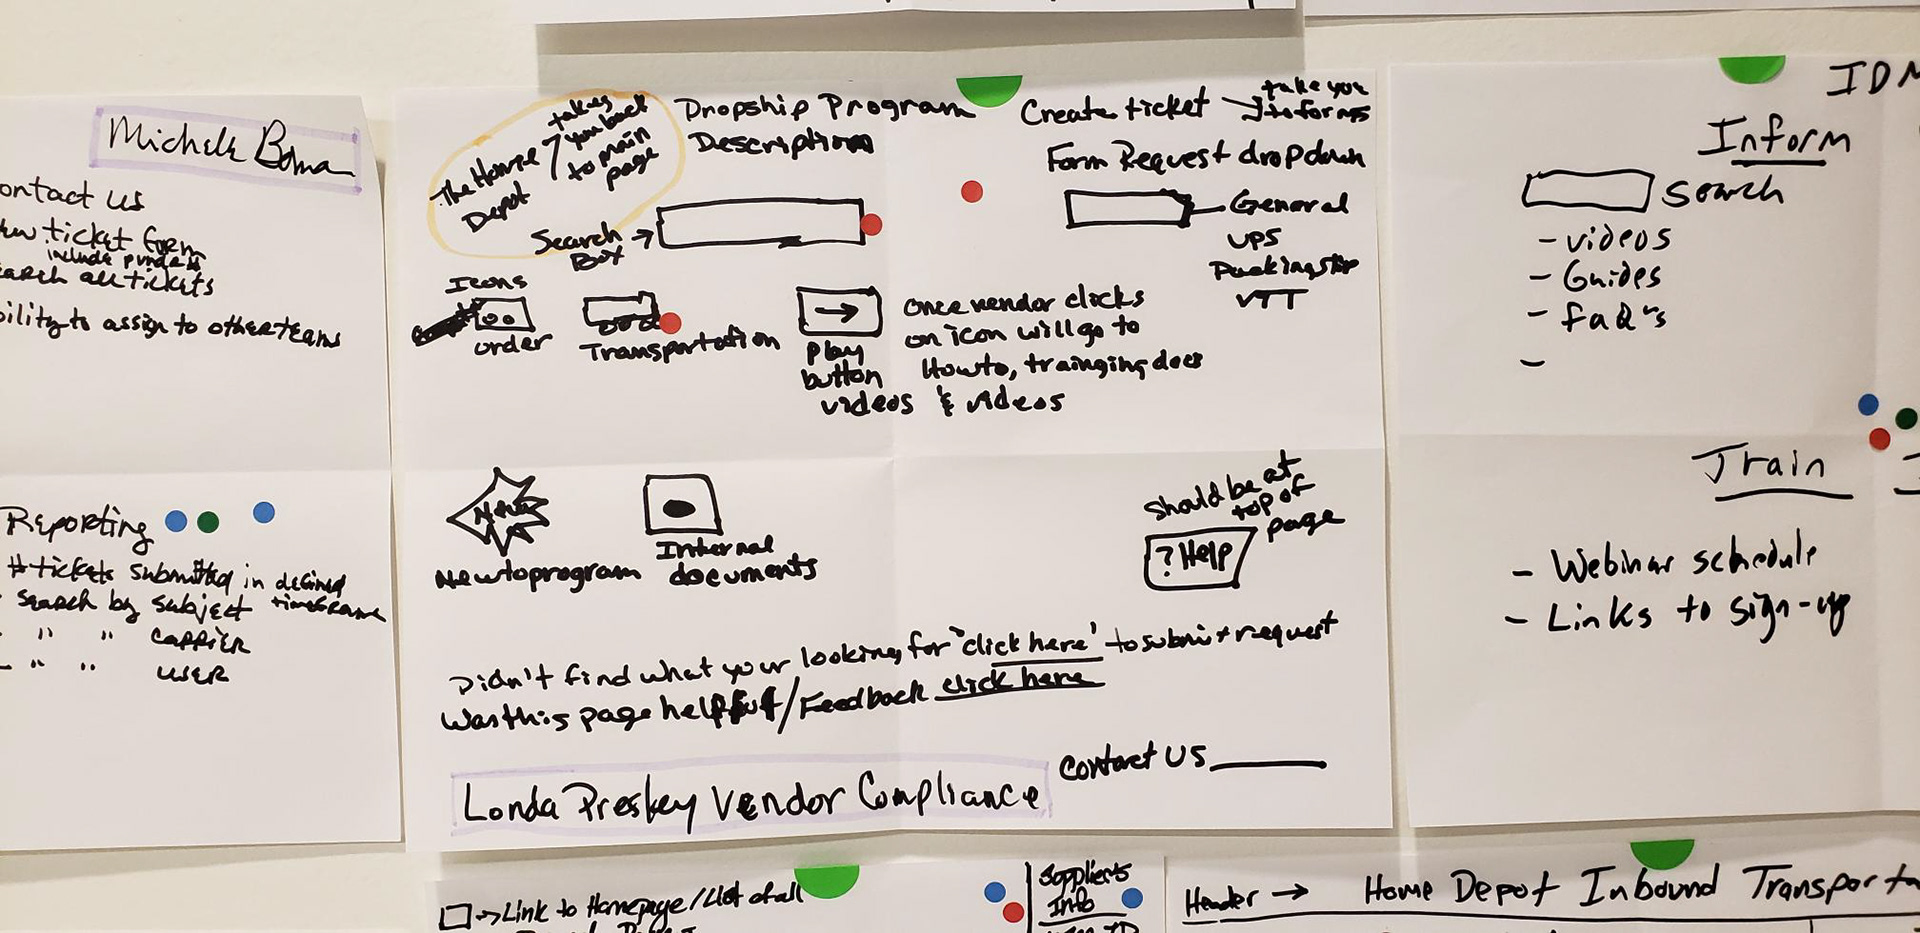 Michele Boma
ontact us
ticket form
include
earch all tickets
bility to assign to other teams
Reporting
# tickets submitted in defined
timeframe
Search by subject
" " carrier
" " user
The Home
Depot
takes
you back
to main
page
Dropship Program
Description
Create ticket
take you
to forms
Form Request dropdown
General
UPS
Packingslip
VTT
Search
Box
Icons
order
Transportation
Play
button
videos
once vendor clicks
on icon will go to
Howto, trainging docs
& videos
New
Newtoprogram
Internal
documents
Should be at
top of
page
? Help
Didn't find what your looking for "click here' to submit request
Was this page helpful/Feedback click here
Contact US
Londa Preskey Vendor Compliance
IDM
Inform
Search
- videos
- Guides
- faQ's
-
Train
- Webinar schedule
- Links to sign-up
Link to Homepage/List of all
Suppliers
Info
Header → Home Depot Inbound Transporta